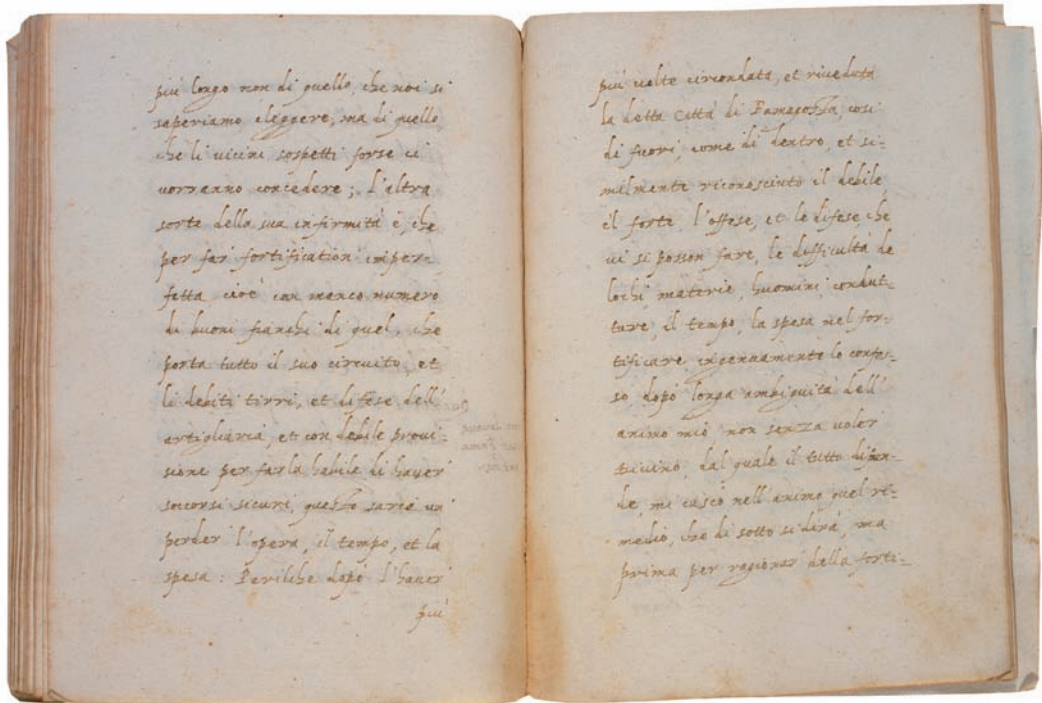 più longo non di quello, che noi si
saperiamo eleggere, ma di quello,
che li vicini sospetti forse ci
vorranno concedere; l'altra
sorte della sua infirmità è, che
per far fortification imper-
fetta, cioè con manco numero
di buoni fianchi di quel, che
porta tutto il suo circuito, et
li debiti tirri, et difese dell'
artigliaria, et con debile provi-
sione per farla habile di haver
soccorsi sicuri, questo saria un
perder l'opera, il tempo, et la
spesa: Perilche dapò l'haver
più
più volte circondata, et riveduta
la detta Città di Famagosta, così
di fuori, come di dentro, et si-
milmente riconosciuto il debile,
il forte, l'offese, et le difese, che
vi si posson fare, le difficultà de
lochi, materie, huomini, condut-
ture, il tempo, la spesa nel for-
tificare, ingenuamente lo confes-
so, dopò longa ambiguità dell'
animo mio non senza voler
divino, dal quale il tutto dipen-
de, mi cascò nell'animo quel ri-
medio, che di sotto si dirà, ma
prima per ragionar della forti-